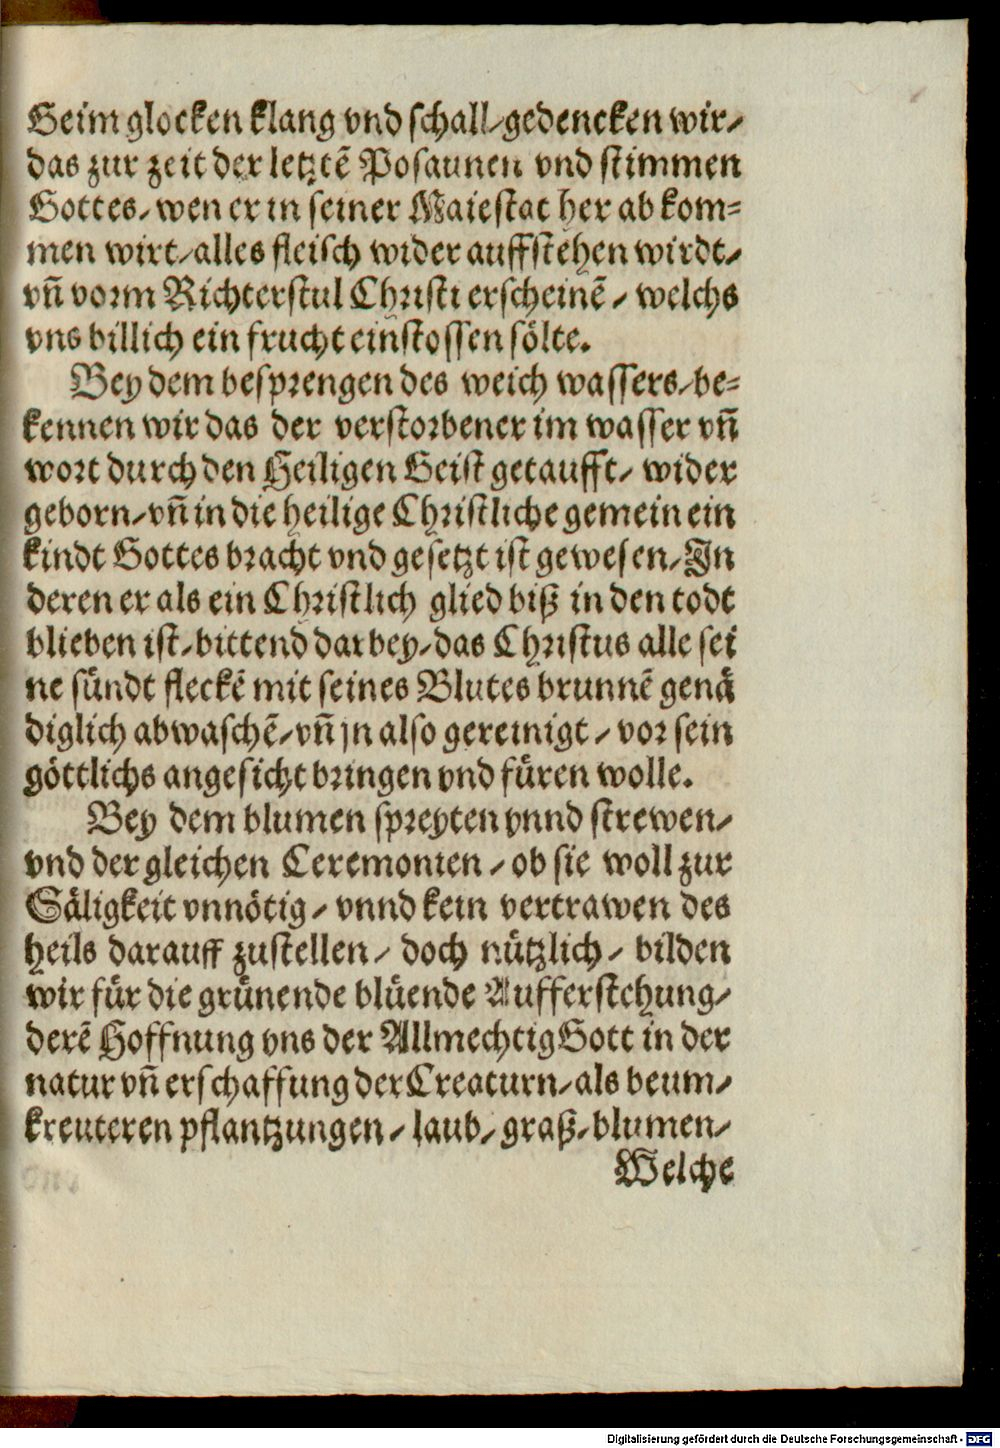 Beim glocken klang vnd schall/gedencken wir/
das zur zeit der letztē Posaunen vnd stimmen
Gottes/wen er in seiner Maiestat her ab kom=
men wirt/alles fleisch wider auffstehen wirdt/
vn̄ vorm Richterstul Christi erscheinē/welchs
vns billich ein frucht einstossen sölte.
Bey dem besprengen des weich wassers/be=
kennen wir das der verstorbener im wasser vn̄
wort durch den Heiligen Geist getaufft/wider
geborn/vn̄ in die heilige Christliche gemein ein
kindt Gottes bracht vnd gesetzt ist gewesen/In
deren er als ein Christlich glied biß in den todt
blieben ist/bittend dar bey/das Christus alle sei
ne sündt fleckē mit seines Blutes brunnē genä
diglich abwaschē/vn̄ jn also gereinigt/vor sein
göttlichs angesicht bringen vnd füren wolle.
Bey dem blumen spreyten vnnd strewen/
vnd der gleichen Ceremonien/ob sie woll zur
Säligkeit vnnötig/vnnd kein vertrawen des
heils darauff zustellen/doch nützlich/bilden
wir für die grünende blüende Aufferstehung/
derē Hoffnung vns der Allmechtig Gott in der
natur vn̄ erschaffung der Creaturn/als beum/
kreuteren pflantzungen/laub/graß/blumen/
Welche
Digitalisierung gefördert durch die Deutsche Forschungsgemeinschaft - DFG